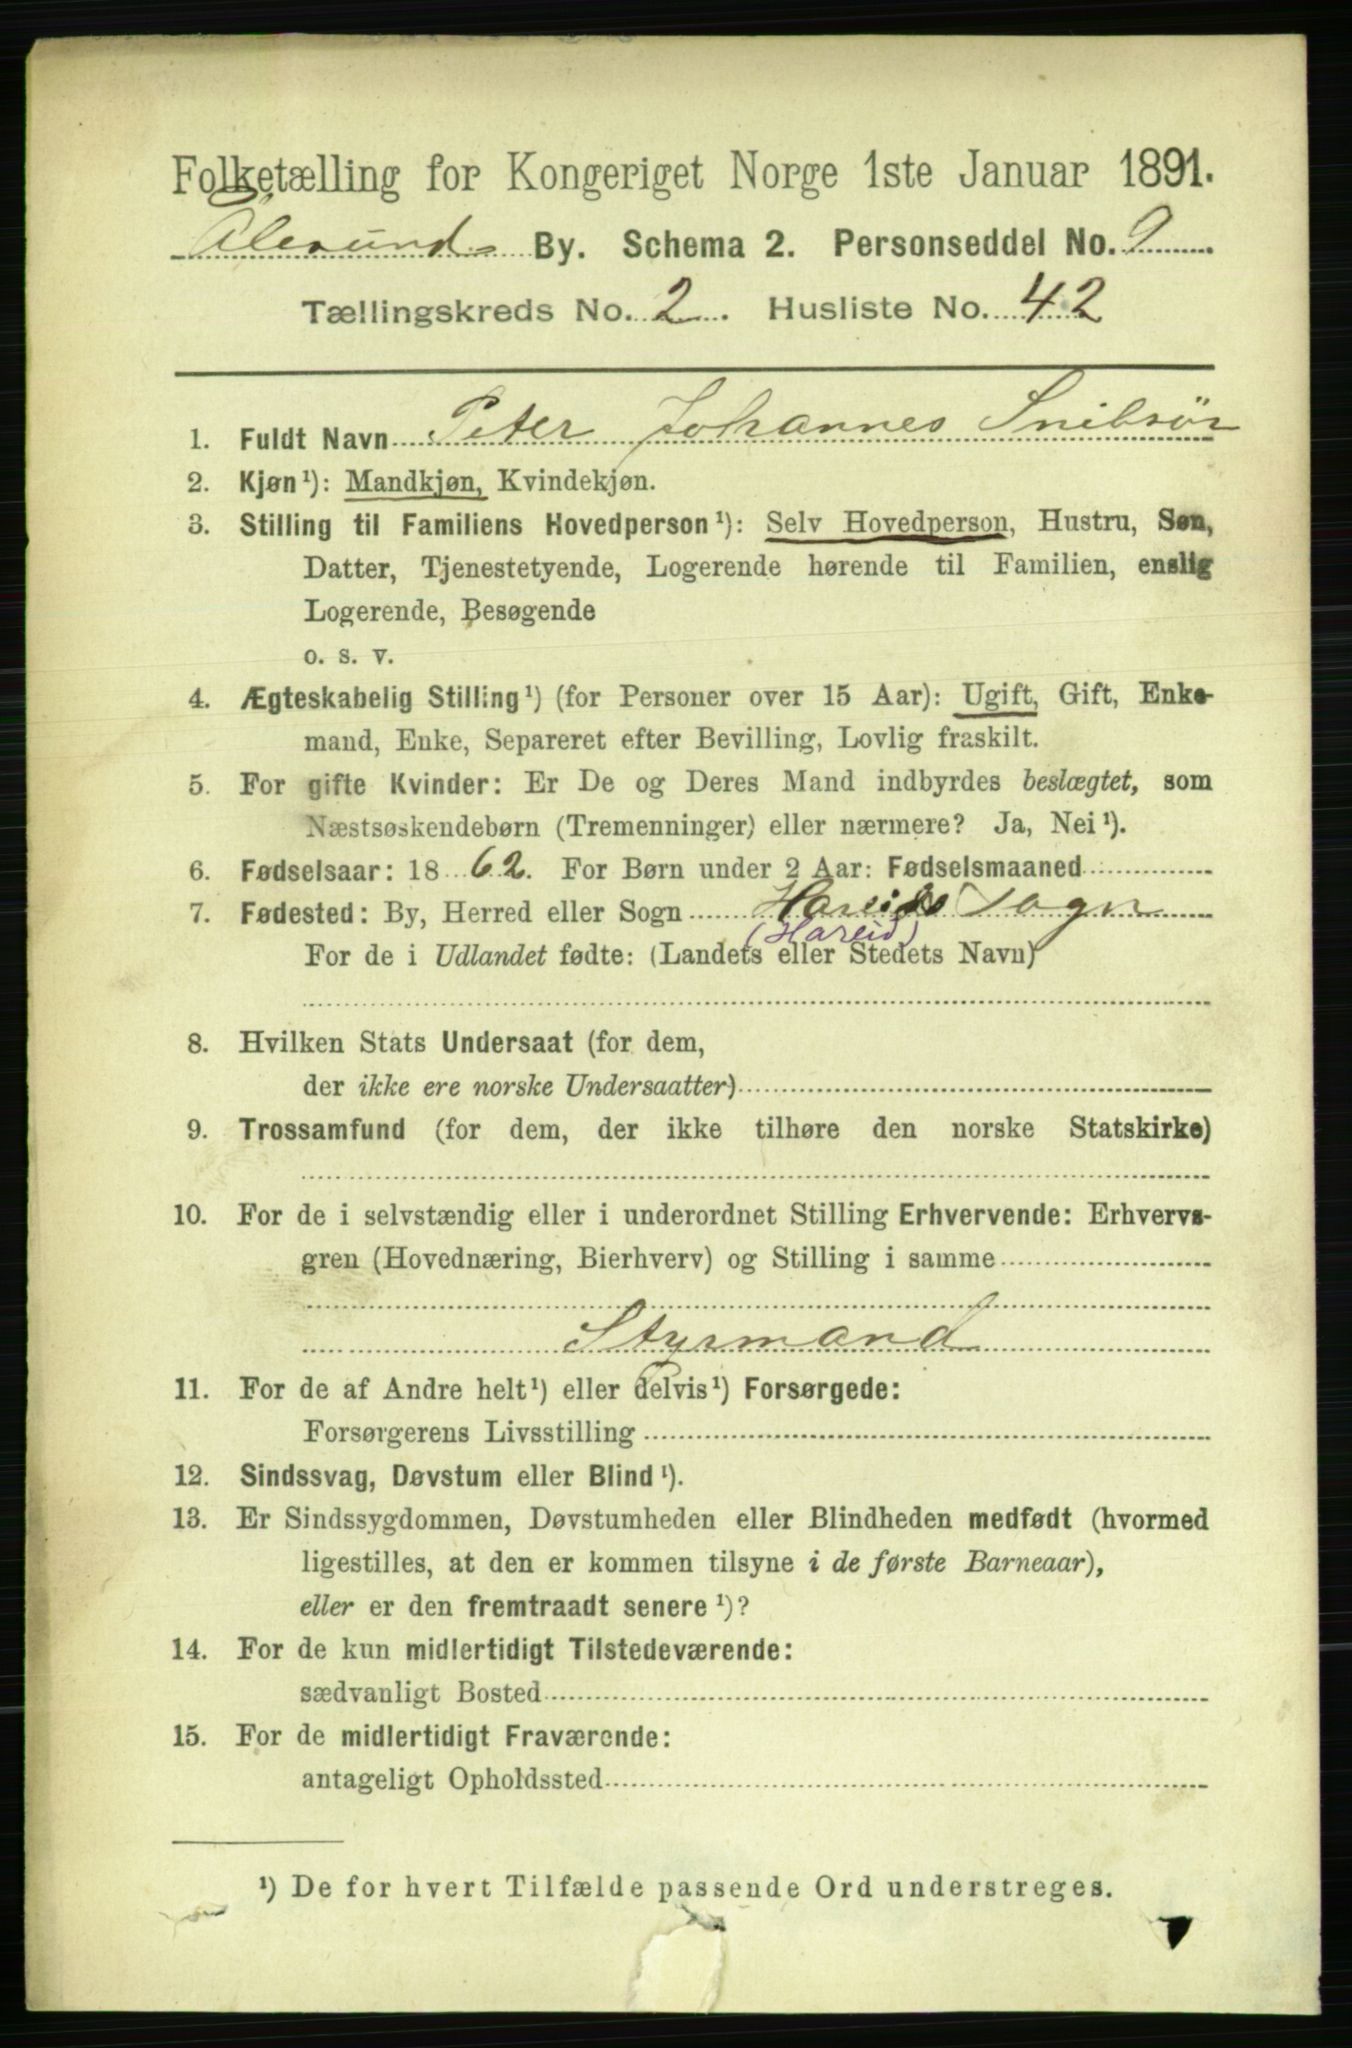 Folketælling for Kongeriget Norge 1ste Januar 1891.
Ålesund By. Schema 2. Personseddel No. 9
Tællingskreds No. 2. Husliste No. 42
1. Fuldt Navn Peter Johannes Snibsør
2. Kjøn¹): Mandkjøn, Kvindekjøn.
3. Stilling til Familiens Hovedperson¹): Selv Hovedperson, Hustru, Søn,
Datter, Tjenestetyende, Logerende hørende til Familien, enslig
Logerende, Besøgende
o. s. v.
4. Ægteskabelig Stilling¹) (for Personer over 15 Aar): Ugift, Gift, Enke-
mand, Enke, Separeret efter Bevilling, Lovlig fraskilt.
5. For gifte Kvinder: Er De og Deres Mand indbyrdes beslægtet, som
Næstsøskendebørn (Tremenninger) eller nærmere? Ja, Nei¹).
6. Fødselsaar: 1862. For Børn under 2 Aar: Fødselsmaaned
7. Fødested: By, Herred eller Sogn Hareids Sogn
(Hareid)
For de i Udlandet fødte: (Landets eller Stedets Navn)
8. Hvilken Stats Undersaat (for dem,
der ikke ere norske Undersaatter)
9. Trossamfund (for dem, der ikke tilhøre den norske Statskirke)
10. For de i selvstændig eller i underordnet Stilling Erhvervende: Erhvervs-
gren (Hovednæring, Bierhverv) og Stilling i samme
Styrmand
11. For de af Andre helt¹) eller delvis¹) Forsørgede:
Forsørgerens Livsstilling
12. Sindssvag, Døvstum eller Blind¹).
13. Er Sindssygdommen, Døvstumheden eller Blindheden medfødt (hvormed
ligestilles, at den er kommen tilsyne i de første Barneaar),
eller er den fremtraadt senere¹)?
14. For de kun midlertidigt Tilstedeværende:
sædvanligt Bosted
15. For de midlertidigt Fraværende:
antageligt Opholdssted
¹) De for hvert Tilfælde passende Ord understreges.